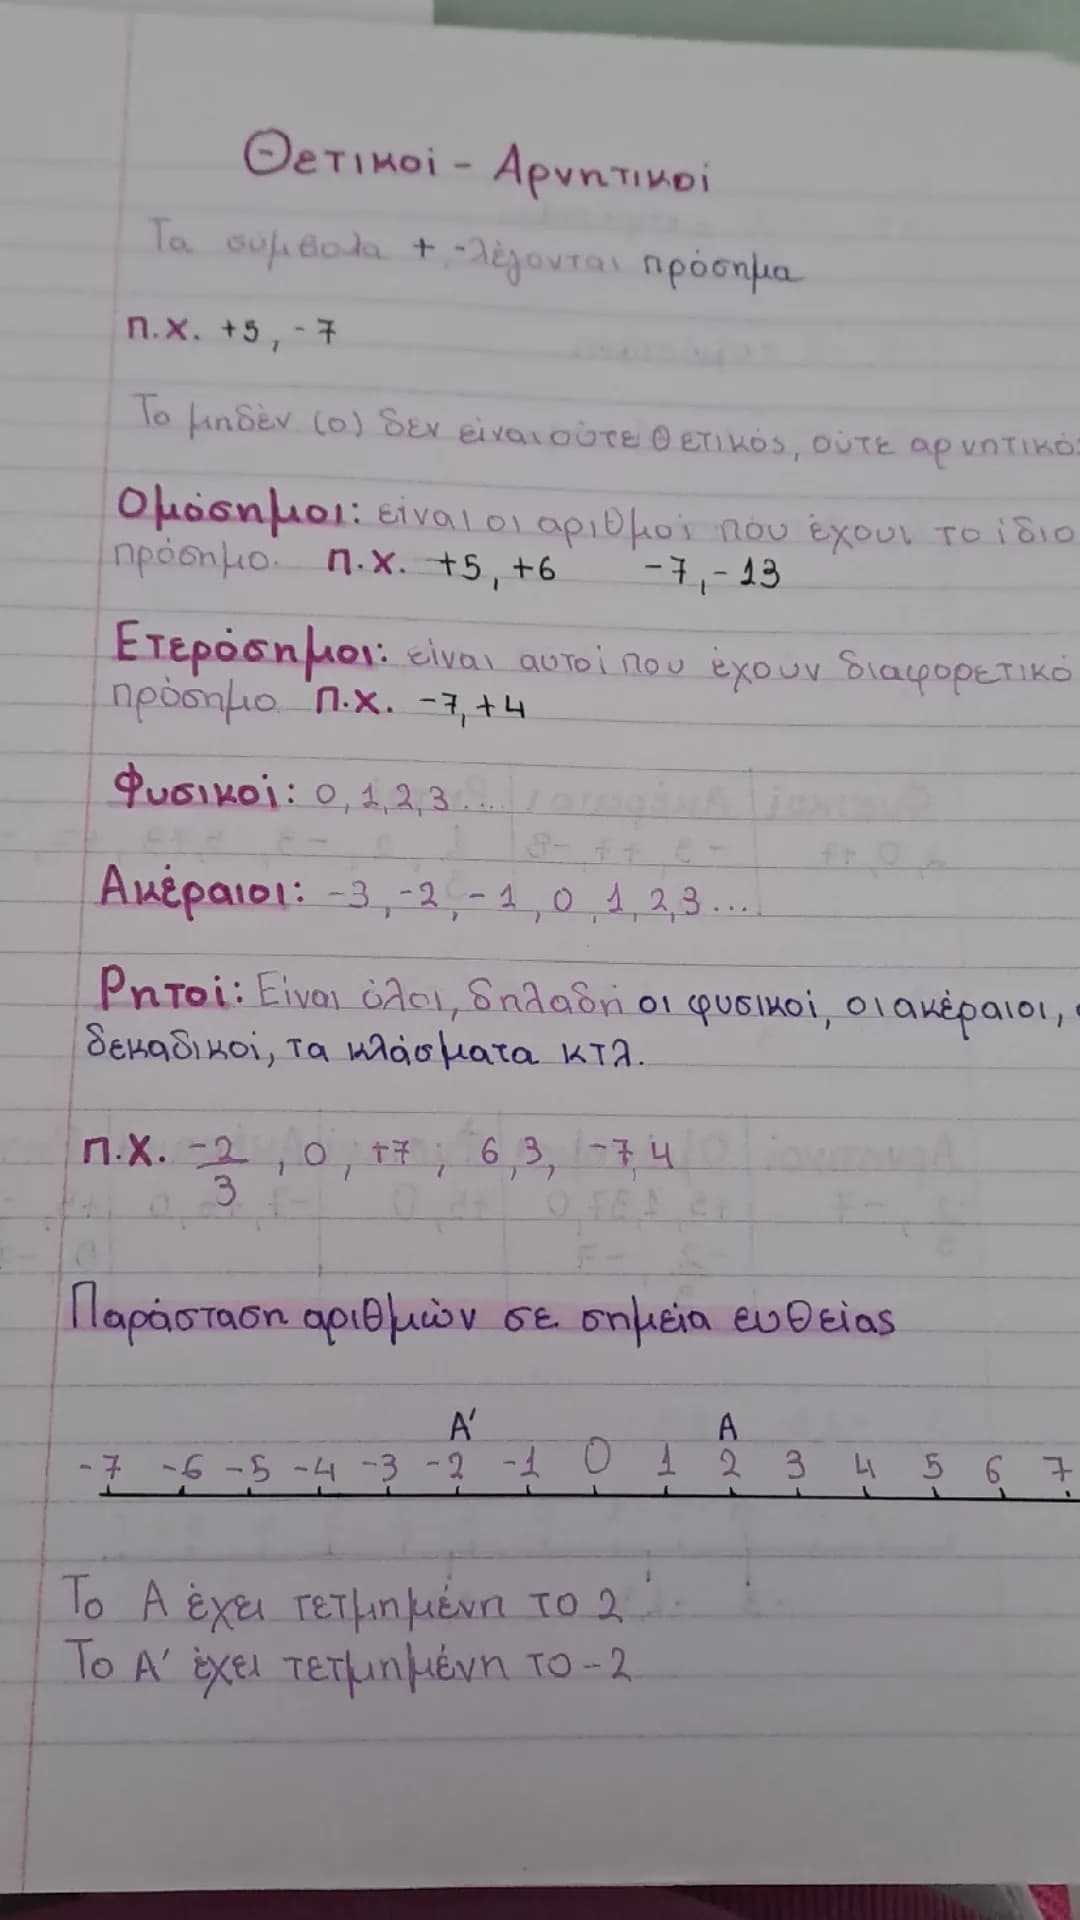 Θετικοί - Αρνητικοί
Τα σύμβολα + , - λέγονται πρόσημα
π.χ. +5, -7
Το μηδέν (0) δεν είναι ούτε θετικός, ούτε αρνητικός
Ομόσημοι: είναι οι αριθμοί που έχουν το ίδιο
πρόσημο. π.χ. +5, +6 -7, -13
Ετερόσημοι: είναι αυτοί που έχουν διαφορετικό
πρόσημο. π.χ. -7, +4
Φυσικοί: 0, 1, 2, 3 ...
Ακέραιοι: -3, -2, -1, 0, 1, 2, 3 ...
Ρητοί: Είναι όλοι, δηλαδή οι φυσικοί, οι ακέραιοι,
δεκαδικοί, τα κλάσματα κτλ.
π.χ. -2/3, 0, +7, 6,3, -7,4
Παράσταση αριθμών σε σημεία ευθείας
Α' Α
-7 -6 -5 -4 -3 -2 -1 0 1 2 3 4 5 6 7
Το Α έχει τετμημένη το 2
Το Α' έχει τετμημένη το -2